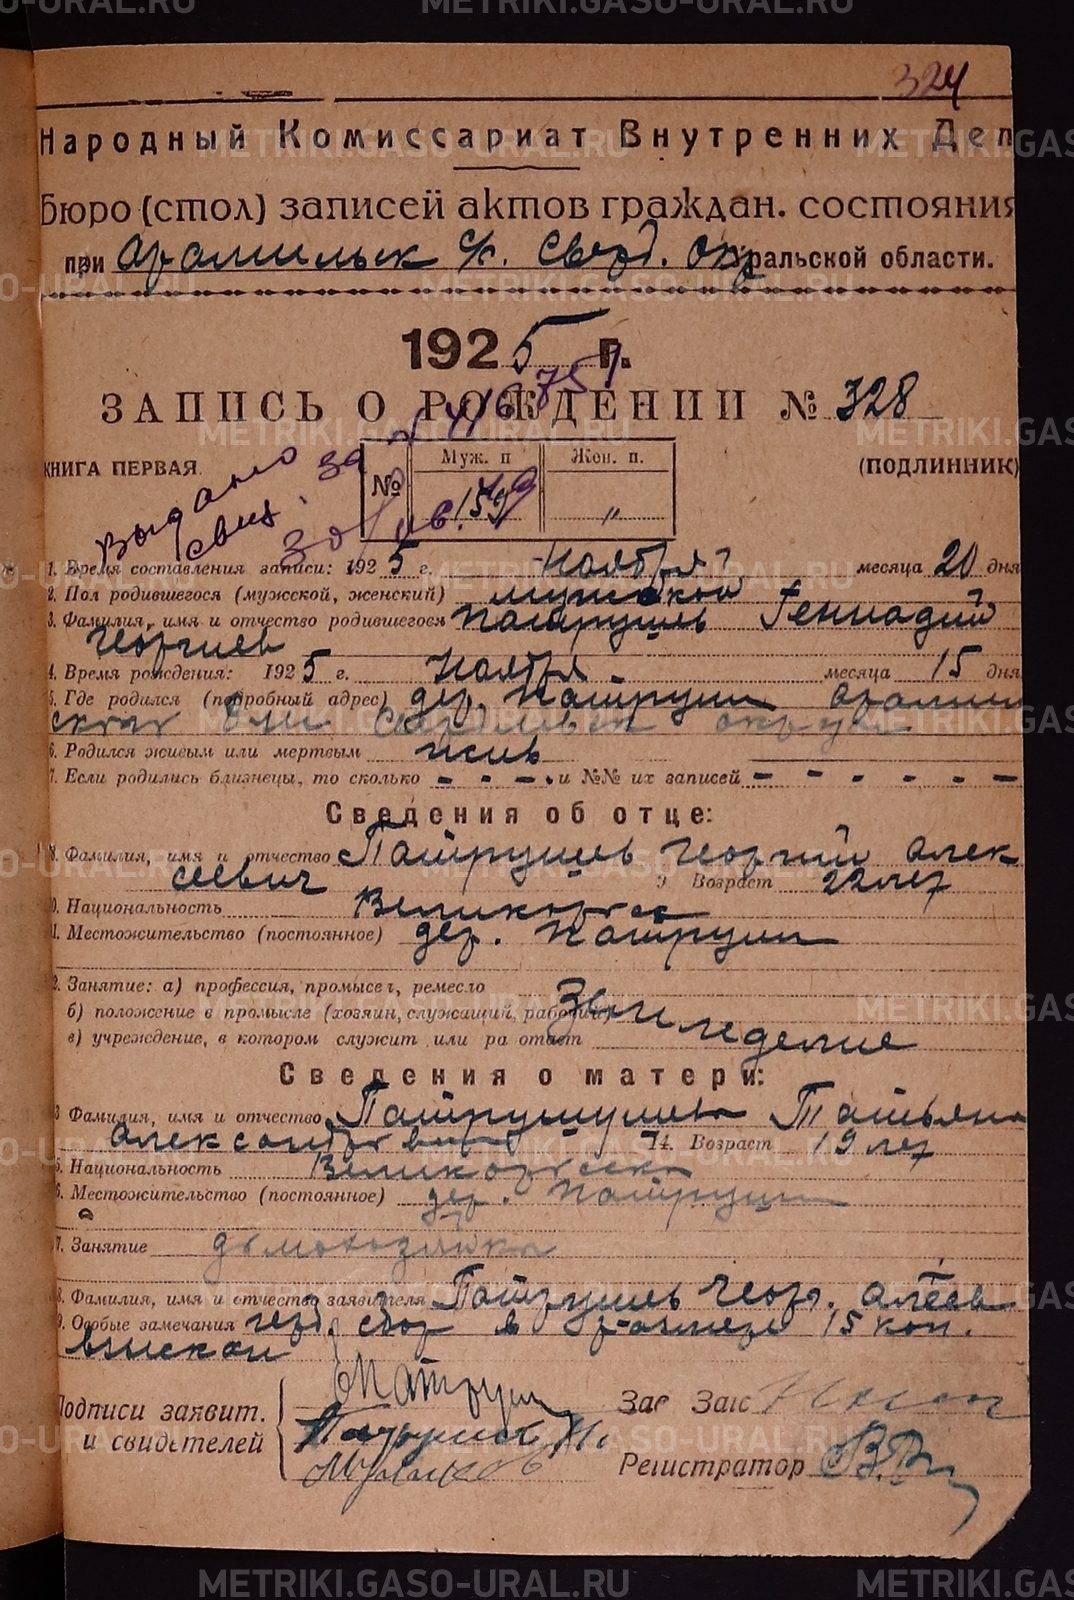 324
Народный Комиссариат Внутренних Дел
Бюро (стол) записей актов граждан. состояния
при Арамильск с/с. Сверд. окр Уральской области.
1925 г.
ЗАПИСЬ О РОЖДЕНИИ № 328
КНИГА ПЕРВАЯ. (ПОДЛИННИК)
Выдано
свид. за №
№ Муж. п Жен. п.
159 "
1. Время составления записи: 1925 г. Ноября месяца 20 дня
2. Пол родившегося (мужской, женский) мужской
3. Фамилия, имя и отчество родившегося Патрушев Геннадий
Георгиев
4. Время рождения: 1925 г. Ноября месяца 15 дня
5. Где родился (подробный адрес) дер. Патруши Арамиль
округа
6. Родился живым или мертвым жив
7. Если родились близнецы, то сколько - - - и №№ их записей - - - - - -
Сведения об отце:
8. Фамилия, имя и отчество Патрушев Георгий Алек
сеевич 9 Возраст 22 лет
0. Национальность Великорос
1. Местожительство (постоянное) дер. Патруши
2. Занятие: а) профессия, промысел, ремесло
б) положение в промысле (хозяин, служащий, рабочий) Земледелие
в) учреждение, в котором служит или работает
Сведения о матери:
3 Фамилия, имя и отчество Татьяна
Александровна 14. Возраст 19 лет
5. Национальность Великоросска
6. Местожительство (постоянное) дер. Патруши
7. Занятие домохозяйка
8. Фамилия, имя и отчество заявителя Патрушев Геор. Алексеев
9. Особые замечания герб. сбор в размере 15 коп.
взыскан
Подписи заявит.
и свидетелей
Зав Загс
Регистратор
METRIKI.GASO-URAL.RU